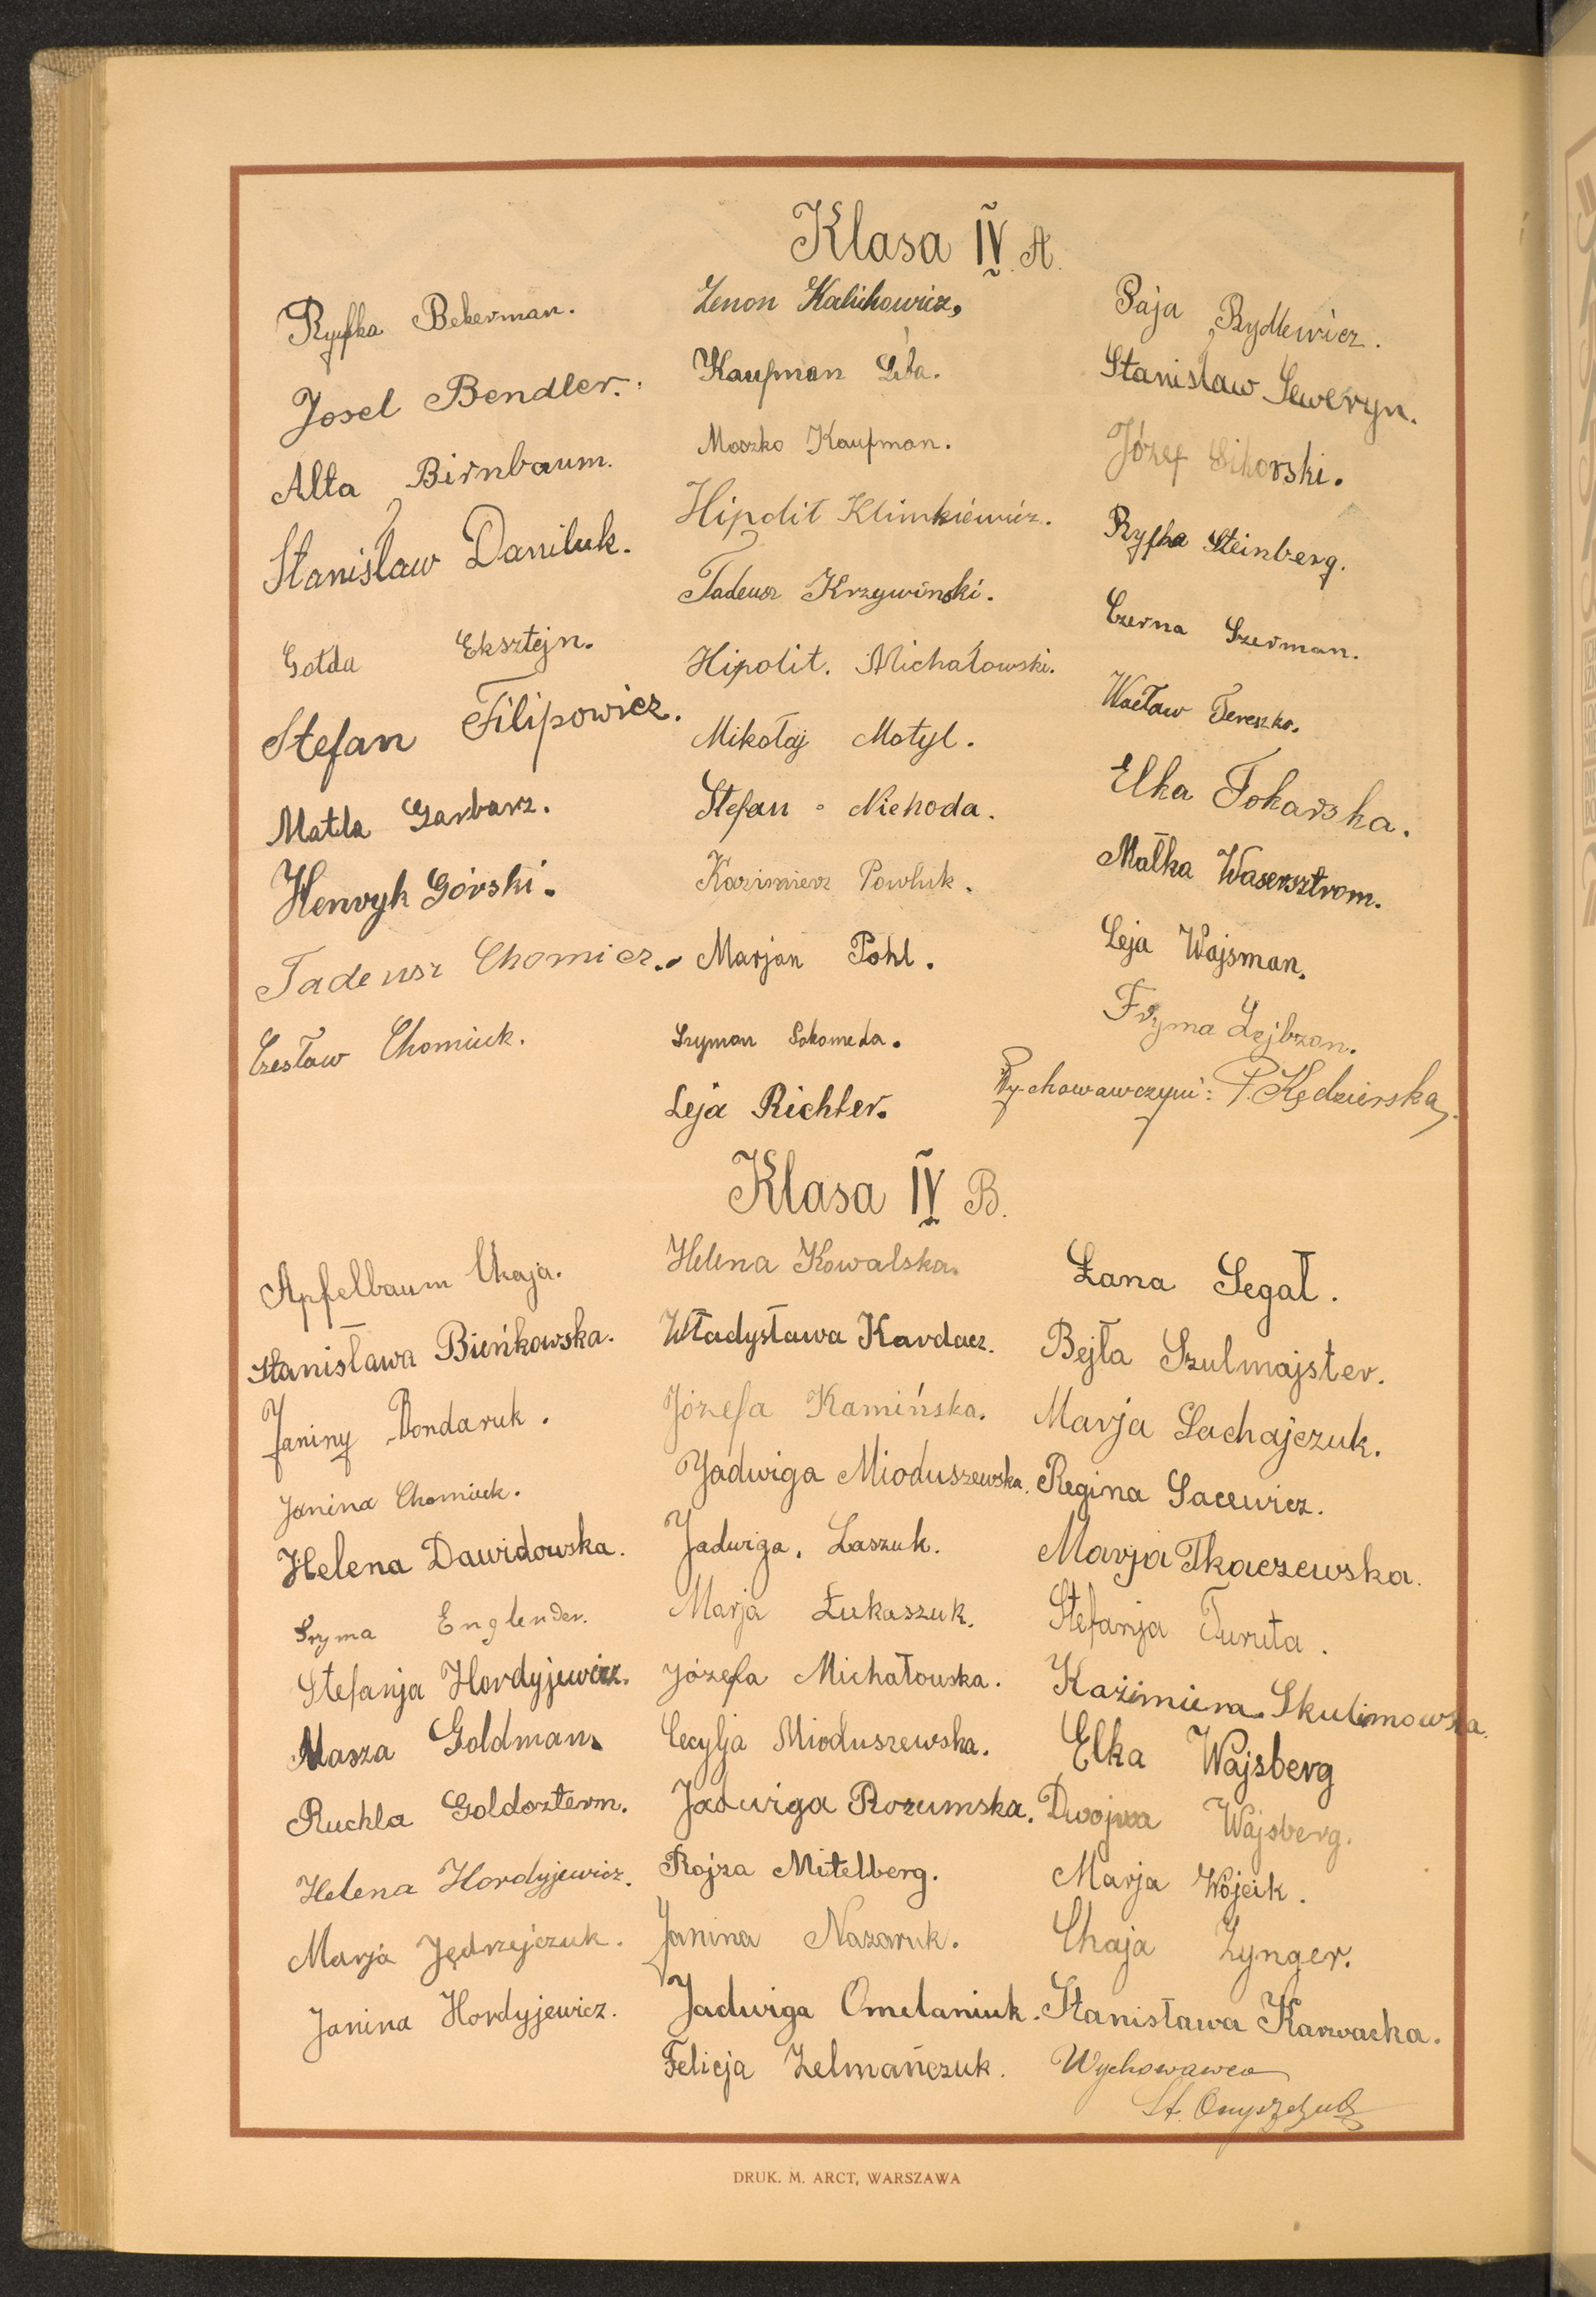 Klasa IV A.
Ryfka Bekerman.
Josel Bendler.
Alta Birnbaum.
Stanisław Daniluk.
Gołda Eksztejn.
Stefan Filipowicz.
Matla Garbarz.
Henryk Górski.
Tadeusz Chomicz.
Czesław Chomiuk.
Zenon Kalichowicz.
Kaufman Liba.
Moszko Kaufman.
Hipolit Klimkiewicz.
Tadeusz Krzywiński.
Hipolit. Michałowski.
Mikołaj Motyl.
Stefan Niehoda.
Kazimierz Pawluk.
Marjan Pohl.
Szymon Sokomeda.
Leja Richter.
Paja Rydlewicz.
Stanisław Seweryn.
Józef Sikorski.
Ryfka Steinberg.
Czerna Szerman.
Wacław Tereszko.
Elka Tokarska.
Małka Wasersztrom.
Leja Wajsman.
Fryma Lejbzon.
Wychowawczyni: P. Kędzierska.
Klasa IV B.
Apfelbaum Chaja.
Stanisława Bieńkowska.
Janiny Bondaruk.
Janina Chomiuk.
Helena Dawidowska.
Szyma Englender.
Stefanja Hordyjewicz.
Masza Goldman.
Ruchla Goldszterm.
Helena Hordyjewicz.
Marja Jędrzejczuk.
Janina Hordyjewicz.
Helena Kowalska.
Władysława Kardacz.
Józefa Kamińska.
Jadwiga Mioduszewska.
Jadwiga. Laszuk.
Marja Łukaszuk.
Józefa Michałowska.
Cecylja Mioduszewska.
Jadwiga Rozumska.
Rojza Mitelberg.
Janina Nazaruk.
Jadwiga Omelaniuk.
Felicja Zelmańczuk.
Łana Segał.
Bejła Szulmajster.
Marja Sachajczuk.
Regina Sacewicz.
Marja Tkaczewska.
Stefanja Turuta.
Kazimiera Skulimowska.
Elka Wajsberg
Dwojra Wajsberg.
Marja Wójcik.
Chaja Zynger.
Stanisława Karwacka.
Wychowawca
St. Onyszczuk
DRUK. M. ARCT, WARSZAWA